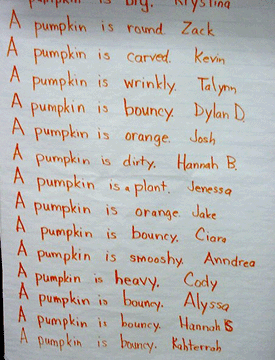 pumpkin is big. Krystina
A pumpkin is round. Zack
A pumpkin is carved. Kevin
A pumpkin is wrinkly. Talynn
A pumpkin is bouncy. Dylan D.
A pumpkin is orange. Josh
A pumpkin is dirty. Hannah B.
A pumpkin is a plant. Jenessa
A pumpkin is orange. Jake
A pumpkin is bouncy. Ciara
A pumpkin is smooshy. Anndrea
A pumpkin is heavy. Cody
A pumpkin is bouncy. Alyssa
A pumpkin is bouncy. Hannah S
A pumpkin is bouncy. Kahterrah